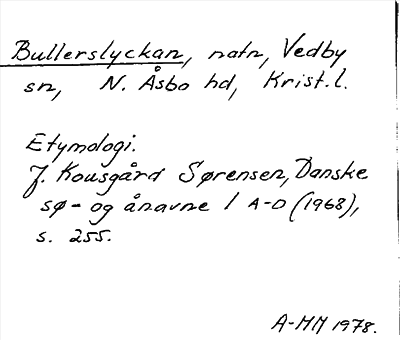 Bullerslyckan, natn, Vedby
sn, N. Åsbo hd, Krist. l.
Etymologi.
J. Kousgård Sørensen, Danske
sø- og ånavne 1 A-D (1968),
s. 255.
A-MM 1978.